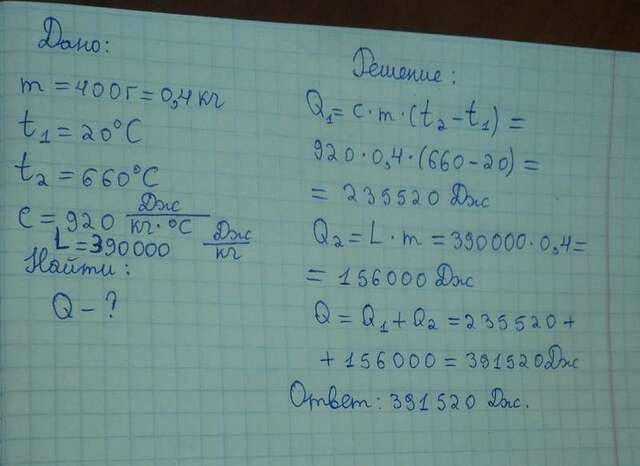 Дано:
m = 400г = 0,4 кг
t₁ = 20°C
t₂ = 660°C
c = 920 Дж/кг·°C
L = 390000 Дж/кг
Найти:
Q – ?
Решение:
Q₁ = c·m·(t₂ – t₁) =
920·0,4·(660 – 20) =
= 235520 Дж
Q₂ = L·m = 390000·0,4 =
= 156000 Дж
Q = Q₁ + Q₂ = 235520 +
+ 156000 = 391520 Дж
Ответ: 391520 Дж.